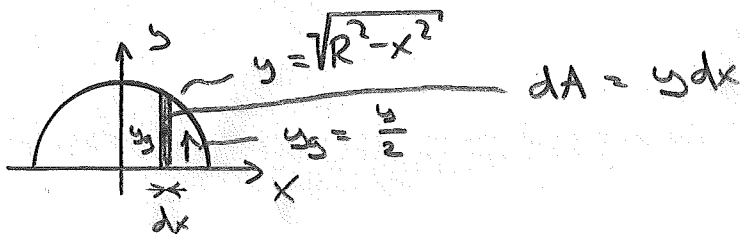 y
y = √(R² - x²)
dA = y dx
y_g
y_g = y/2
x
dx